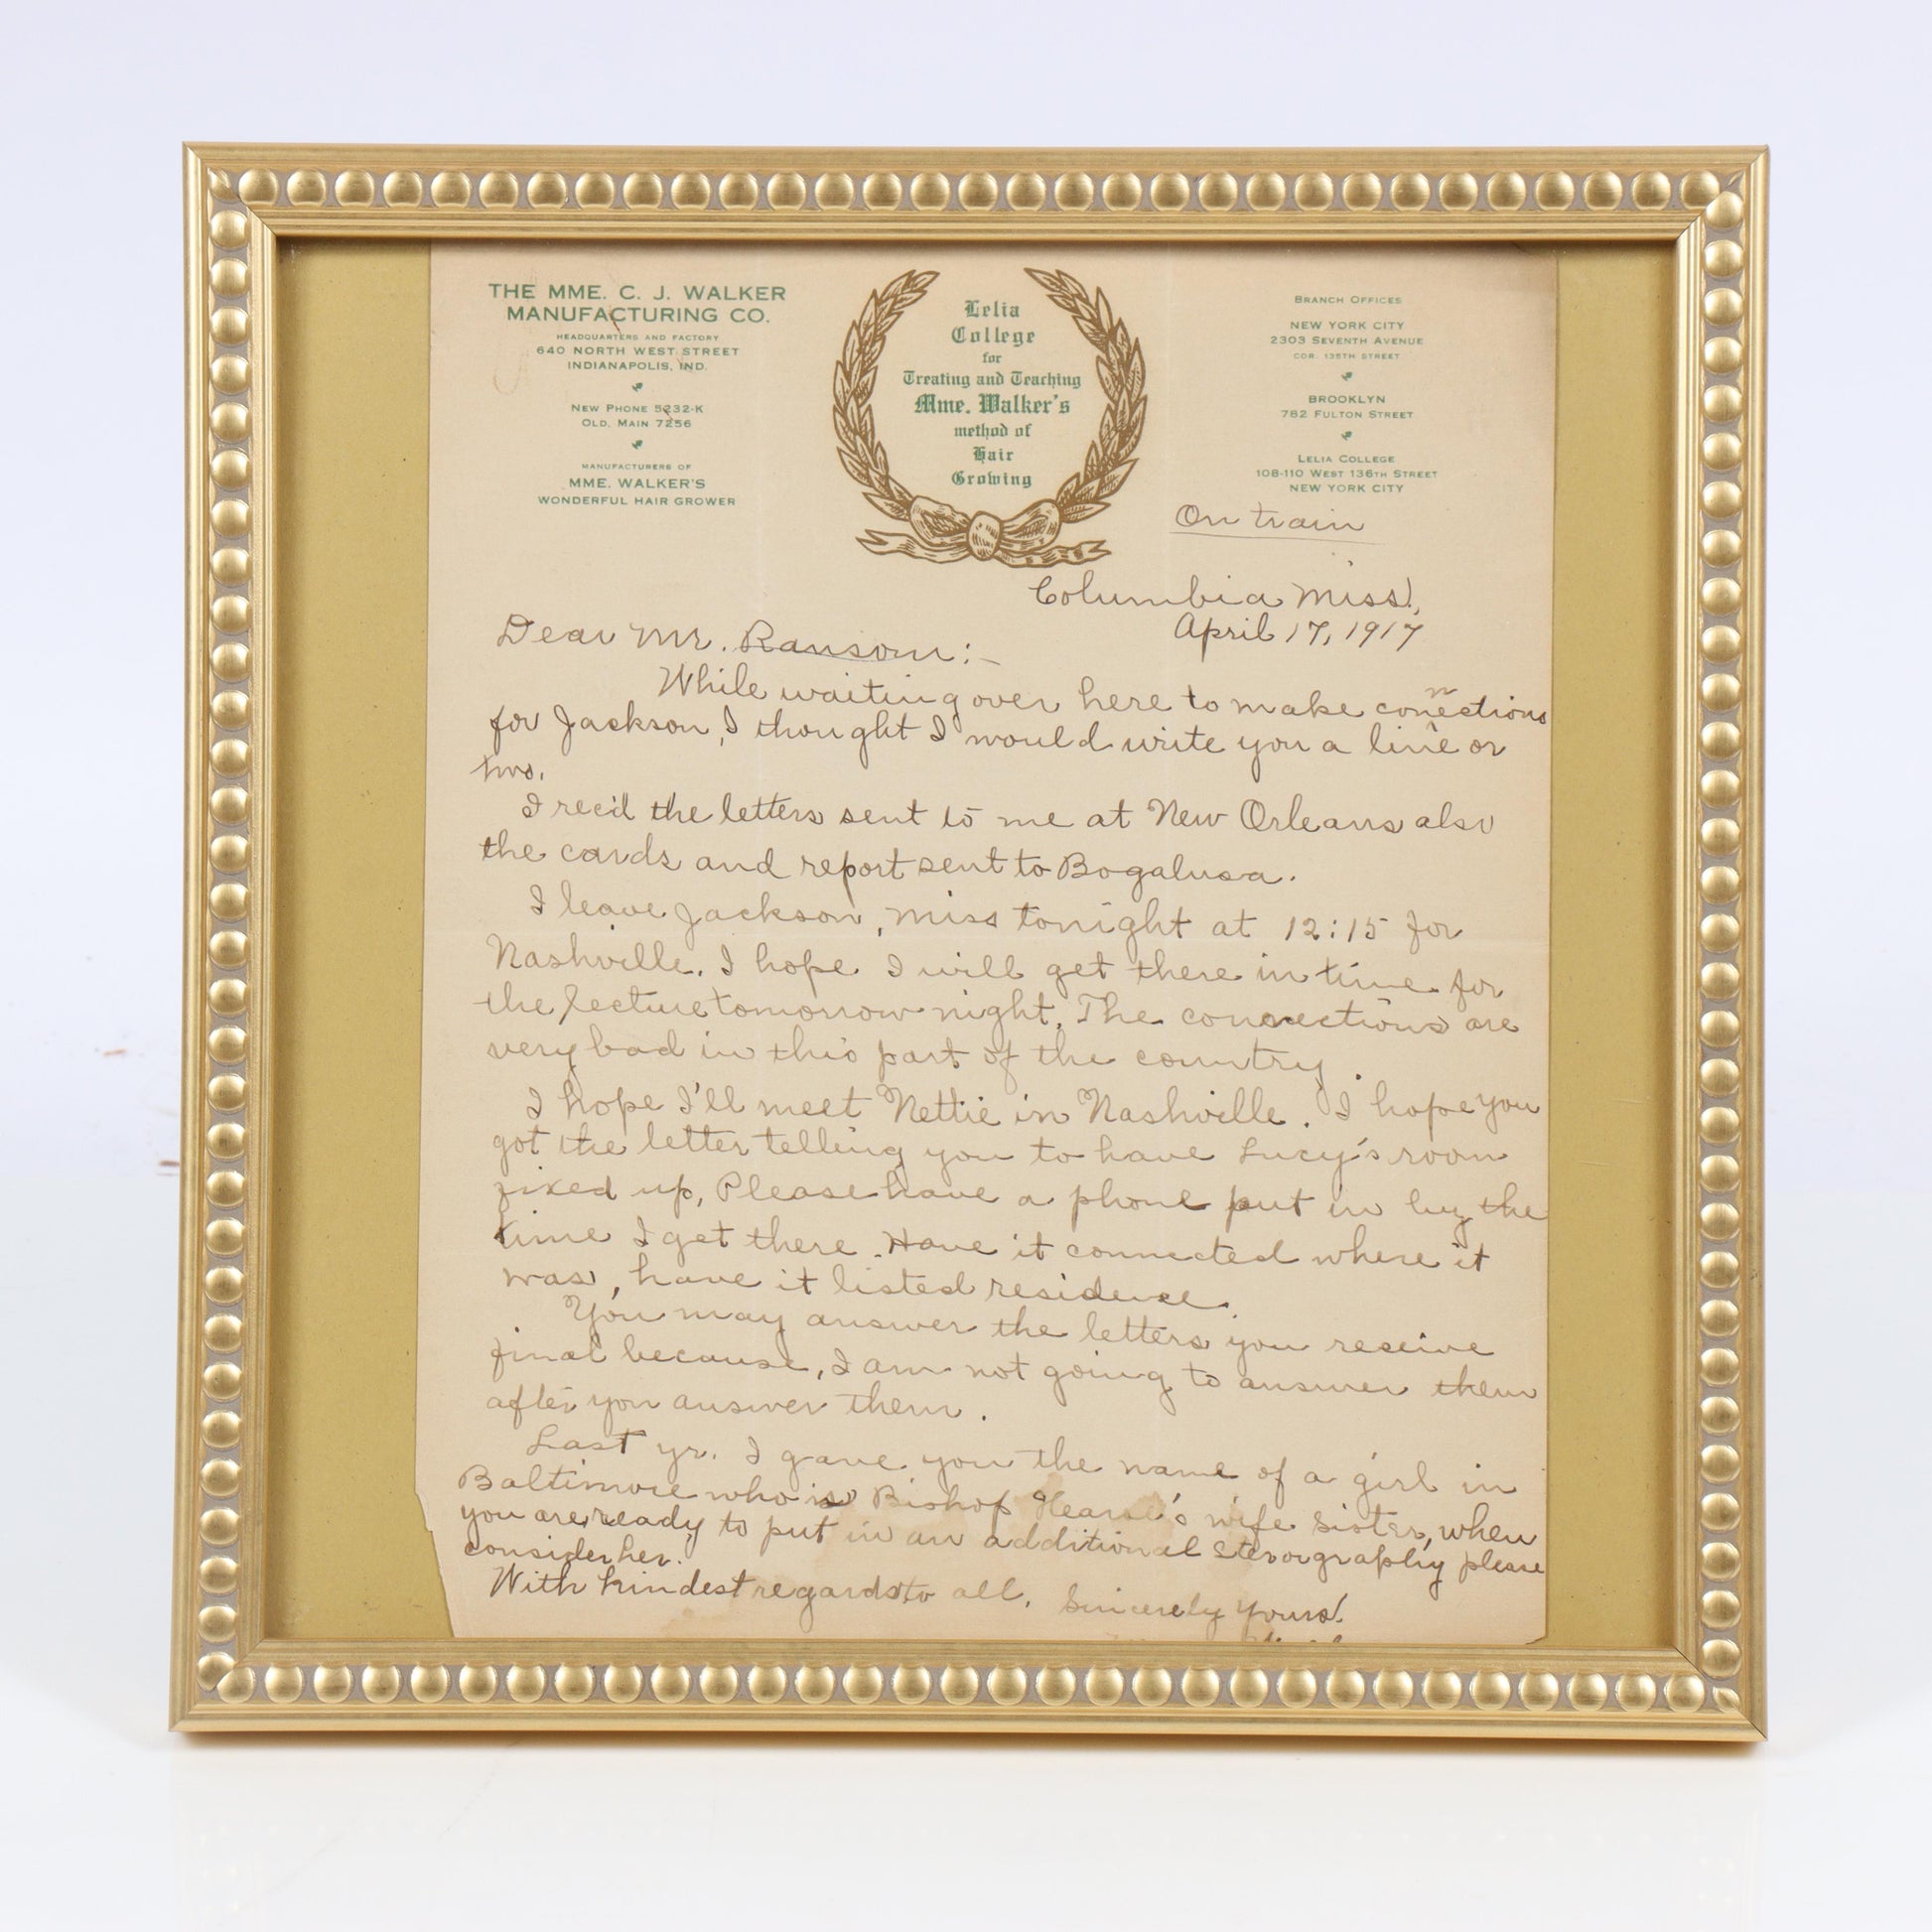 THE MME. C. J. WALKER
MANUFACTURING CO.
HEADQUARTERS AND FACTORY
640 NORTH WEST STREET
INDIANAPOLIS, IND.
NEW PHONE 5232-K
OLD, MAIN 7256
MANUFACTURERS OF
MME. WALKER'S
WONDERFUL HAIR GROWER
Lelia
College
for
Treating and Teaching
Mme. Walker's
method of
Hair
Growing
BRANCH OFFICES
NEW YORK CITY
2303 SEVENTH AVENUE
COR. 135TH STREET
BROOKLYN
782 FULTON STREET
LELIA COLLEGE
108-110 WEST 136TH STREET
NEW YORK CITY
On train
Columbia Miss.
April 17, 1917
Dear Mr. Ransom:-
While waiting over here to make connections
for Jackson, I thought I would write you a line or
two.
I rec'd the letters sent to me at New Orleans also
the cards and report sent to Bogalusa.
I leave Jackson, Miss tonight at 12:15 for
Nashville. I hope I will get there in time for
the lecture tomorrow night. The connections are
very bad in this part of the country.
I hope I'll meet Nettie in Nashville. I hope you
got the letter telling you to have Lucy's room
fixed up, Please have a phone put in by the
time I get there. Have it connected where it
was, have it listed residence.
You may answer the letters you receive
final because, I am not going to answer them
after you answer them.
Last yr. I gave you the name of a girl in
Baltimore who is Bishop wife sister, when
you are ready to put in an additional please
consider her.
With kindest regards to all. Sincerely Yours.